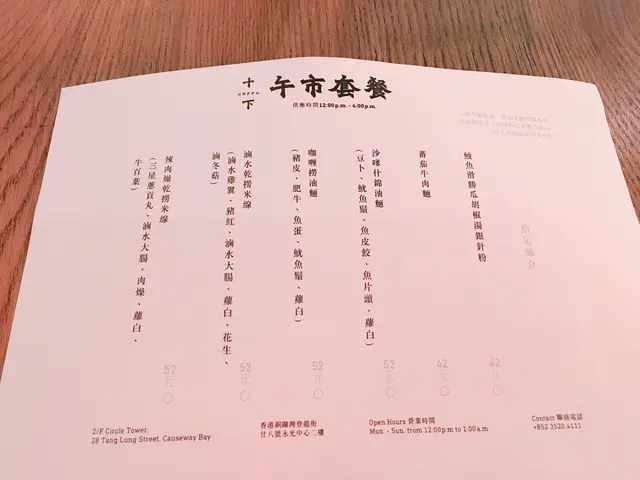 十
下
午市套餐
供應時間12:00p.m. - 4:00p.m.
指定麵食
鯪魚滑勝瓜胡椒湯銀針粉
42元
蕃茄牛肉麵
42元
沙嗲什錦油麵
(豆卜、魷魚鬚、魚皮餃、魚片頭、蘿白)
52元
咖喱撈油麵
(豬皮、肥牛、魚蛋、魷魚鬚、蘿白)
52元
滷水乾撈米線
(滷水雞翼、豬紅、滷水大腸、蘿白、花生、
滷冬菇)
52元
辣肉燥乾撈米線
(三星蔥貢丸、滷水大腸、肉燥、蘿白、
牛百葉)
52元
2/F Circle Tower,
28 Tang Lung Street, Causeway Bay
香港銅鑼灣登龍街
廿八號永光中心二樓
Open Hours 營業時間
Mon. - Sun. from 12:00p.m to 1:00a.m
Contact 聯絡電話
+852 3520 4111